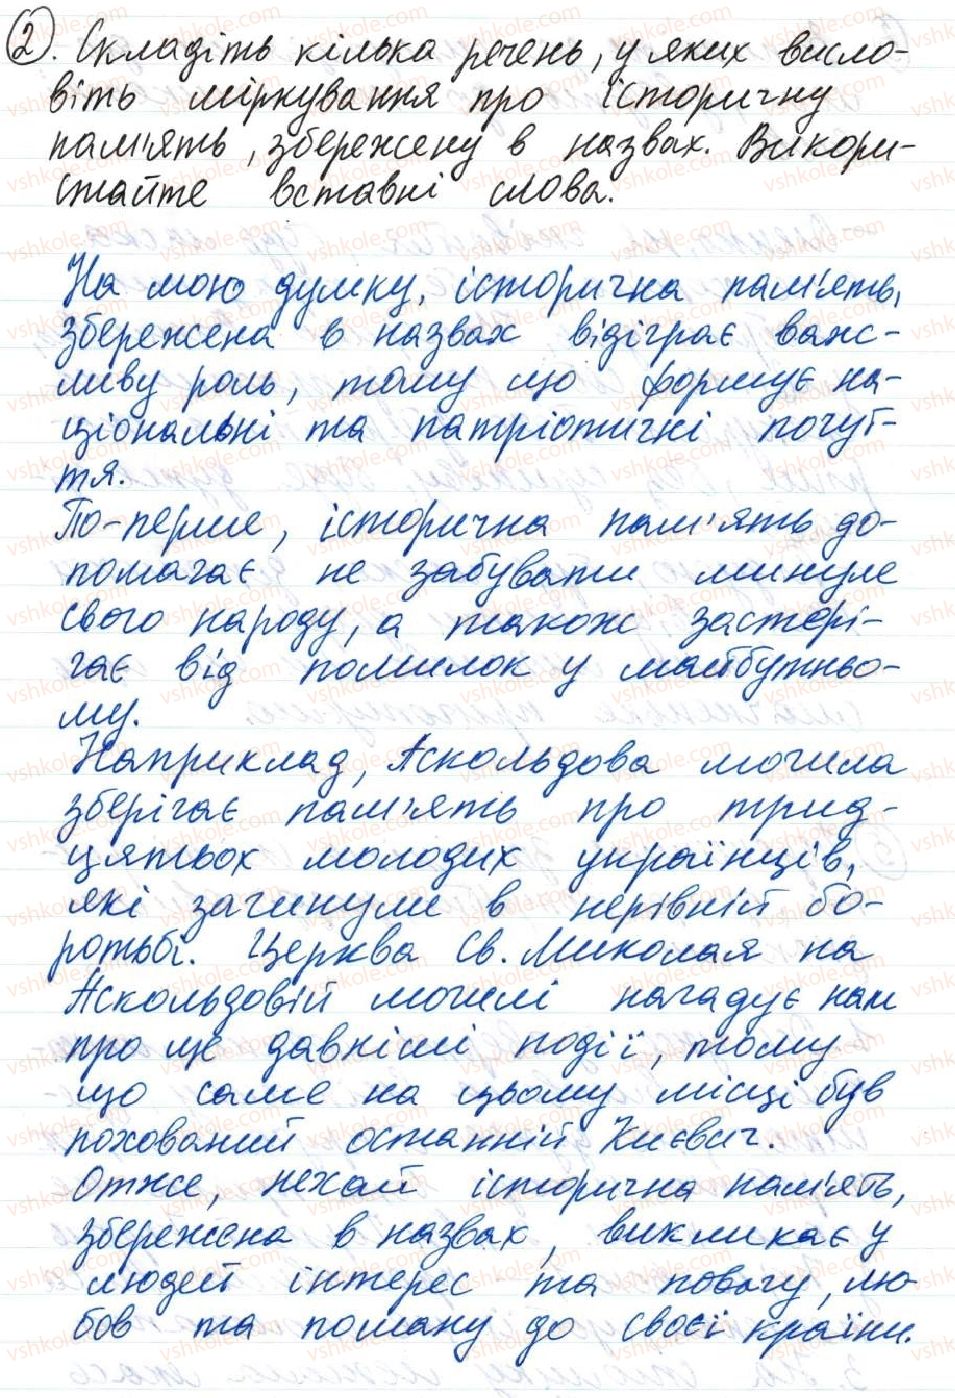 2. Складіть кілька речень, у яких висло-
віть міркування про історичну
пам'ять, збережену в назвах. Викори-
стайте вставні слова.
На мою думку, історична пам'ять,
збережена в назвах відіграє важ-
ливу роль, тому що формує на-
ціональні та патріотичні почут-
тя.
По-перше, історична пам'ять до-
помагає не забувати минуле
свого народу, а також застері-
гає від помилок у майбутньо-
му.
Наприклад, Аскольдова могила
зберігає пам'ять про трид-
цятьох молодих українців,
які загинули в нерівній бо-
ротьбі. Церква Св. Миколая на
Аскольдовій могилі нагадує нам
про ще давніші події, тому
що саме на цьому місці був
похований останній Києвич.
Отже, нехай історична пам'ять,
збережена в назвах, викликає у
людей інтерес та повагу, лю-
бов та пошану до своєї країни.